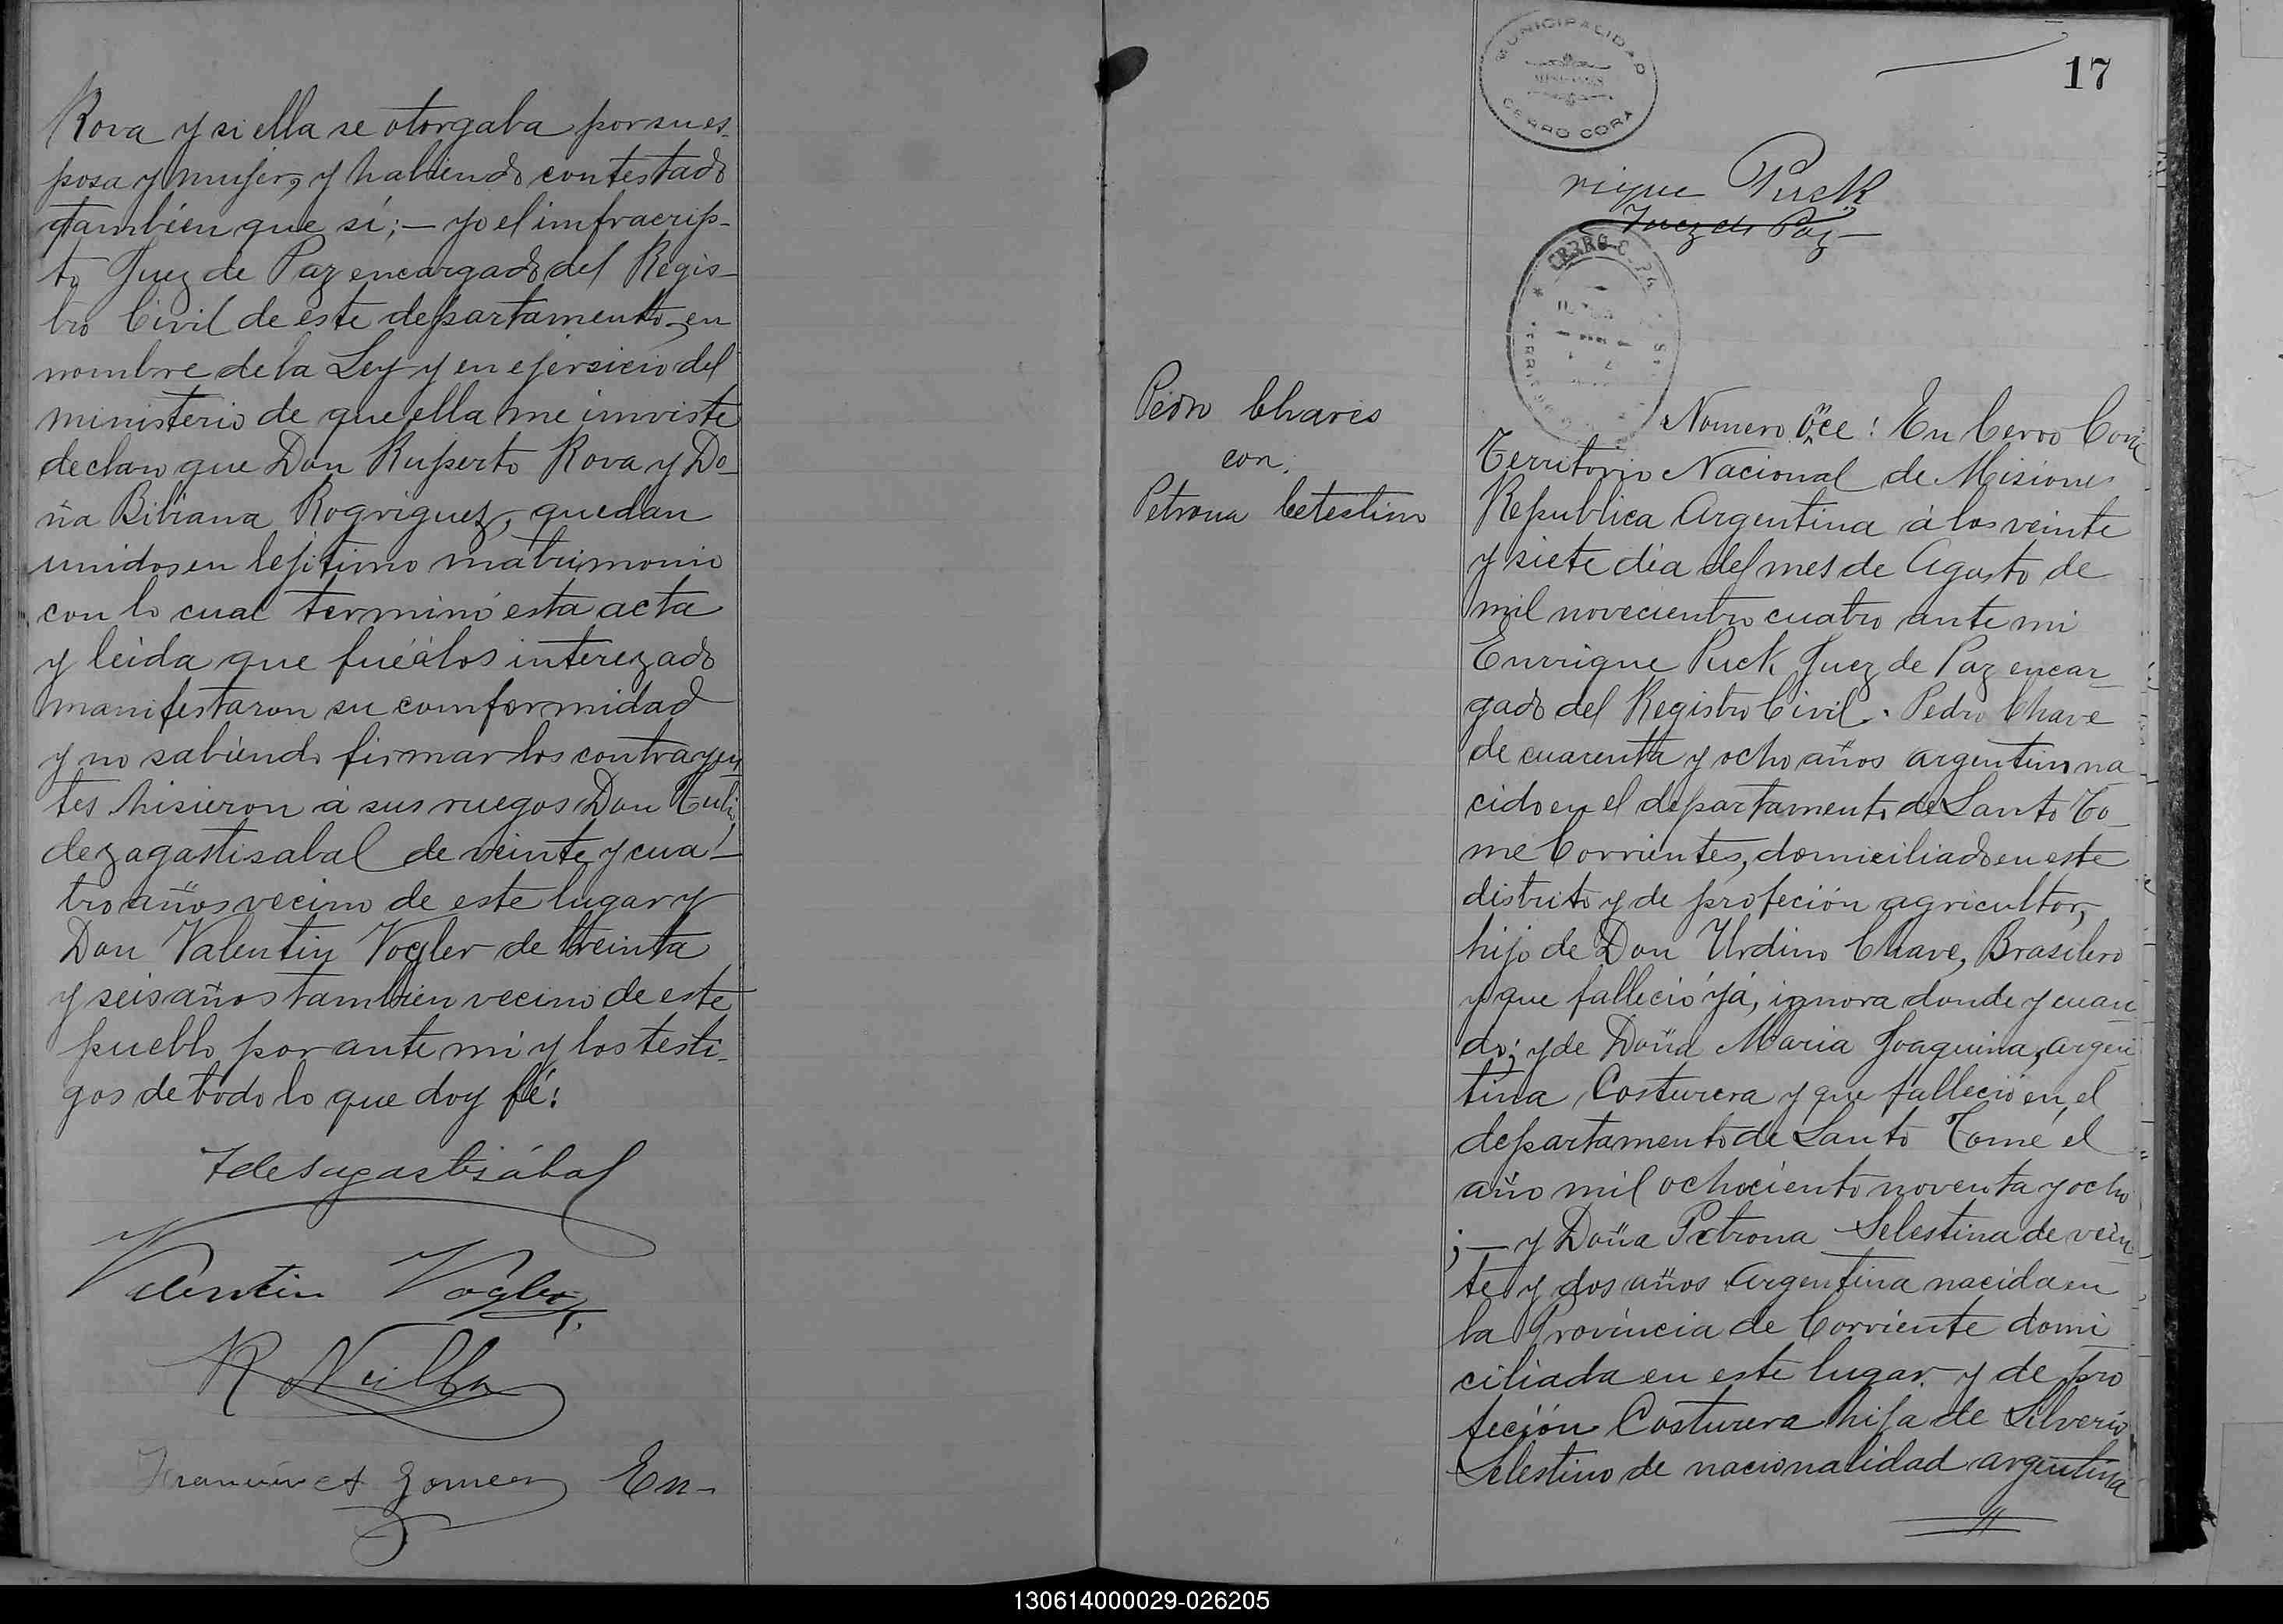 Rova y si ella se otorgaba por su es-
posa y mujer, y habiendo contestado
tambien que sí;— yo el imfracrip-
to Juez de Paz encargado del Regis-
tro Civil de este departamento, en
nombre de la Ley y en ejersicio del
ministerio de que ella me imviste
declaro que Don Ruperto Rova y Do-
ña Bibiana Rogriguez, quedan
unidos en lejitimo matrimonio
con lo cual terminó esta acta
y leida que fué á los interezado
manifestaron su comformidad
y no sabiendo firmar los contrayen
tes hisieron á sus ruegos Don
de zagastisabal de veinte y cua-
tro años vecino de este lugar y
Don Valentin Vogler de treinta
y seis años tambien vecino de este
pueblo, por ante mi y los testi-
gos de todo lo que doy fé:
desagastisábal
Valentin Vogler
R
Gomez En-
MUNICIPALIDAD
MISIONES
CERRO CORA
17
rique Puck
Juez de Paz
Pedro Chaves
con.
Petrona Celestino
Nomero oce: En Cerro Corá
Territorio Nacional de Misiones
Republica Argentina á los veinte
y siete dia del mes de Agosto de
mil novecientro cuatro ante mi
Enrrique Puck Juez de Paz encar-
gado del Registro Civil. Pedro Chave
de cuarenta y ocho años argentino na-
cido en el departamento de Santo To-
me Corrientes, domiciliado en este
distrito y de profeción agricultor,
hijo de Don Urdino Chave, Brasilero
y que falleció yá, ignora donde y cuan-
do; y de Doña Maria Joaquina, argen
tina, Costurera y que falleció en el
departamento de Santo Tomé el
año mil ochociento noventa y ocho
;— y Doña Petrona Selestina de vein-
te y dos años Argentina nacida en
la Provincia de Corriente domi
ciliada en este lugar y de pro
feción Costurera hija de Silverio
Selestino de nacionalidad argentina
130614000029-026205